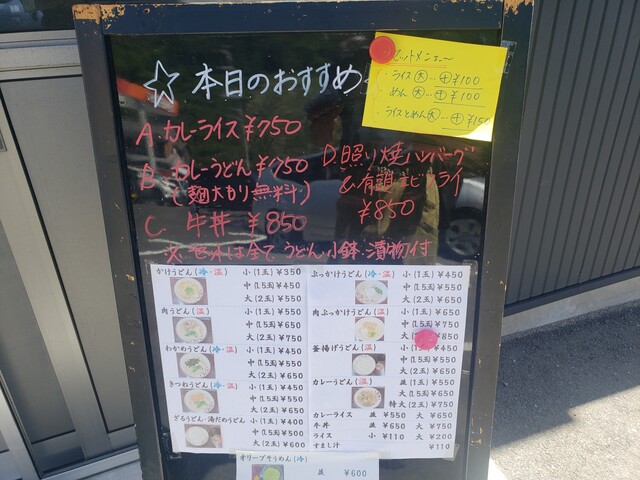 ☆本日のおすすめ
A.カレーライス ¥750
B.カレーうどん ¥750
(麺大もり無料)
C. 牛丼 ¥850
D.照り焼ハンバーグ
&有頭エビフライ
¥850
※ セットは全て、うどん、小鉢、漬物付
セットメニュー
・ライス大…＋¥100
・めん大…＋¥100
・ライスとめん大…＋¥150
かけうどん(冷・温) 小(1玉)¥350
中(1.5玉)¥450
大(2玉)¥550
肉うどん(温) 小(1玉)¥550
中(1.5玉)¥650
大(2玉)¥750
わかめうどん(冷・温) 小(1玉)¥450
中(1.5玉)¥550
大(2玉)¥650
きつねうどん(冷・温) 小(1玉)¥450
中(1.5玉)¥550
大(2玉)¥650
ざるうどん・湯だめうどん 小(1玉)¥400
中(1.5玉)¥500
大(2玉)¥600
ぶっかけうどん(冷・温) 小(1玉)¥450
中(1.5玉)¥550
大(2玉)¥650
肉ぶっかけうどん(温) 小(1玉)¥650
中(1.5玉)¥750
大(2玉)¥850
釜揚げうどん(温) 小(1玉)¥450
中(1.5玉)¥550
大(2玉)¥650
カレーうどん(温) 並(1玉)¥550
大(1.5玉)¥650
特大(2玉)¥750
カレーライス 並 ¥550 大 ¥650
牛丼 並 ¥650 大 ¥750
ライス 小 ¥110 大 ¥200
すまし汁 ¥110
オリーブそうめん(冷)
並 ¥600